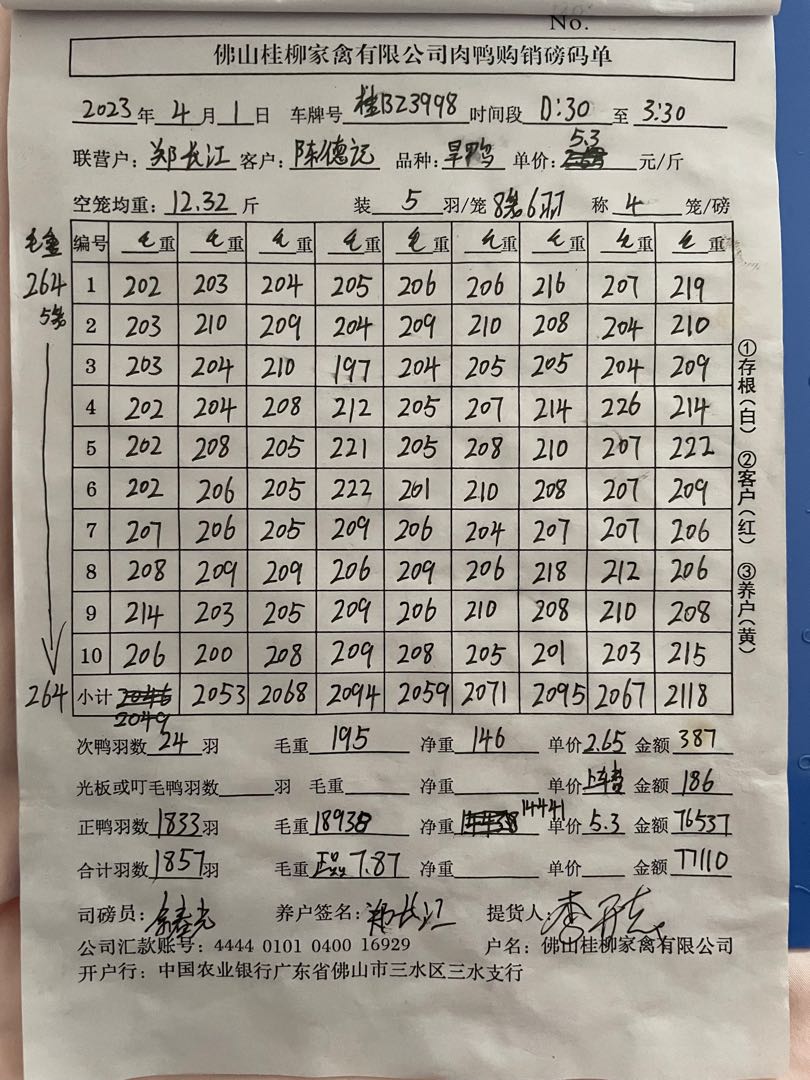 No.
佛山桂柳家禽有限公司肉鸭购销磅码单
2023年4月1日 车牌号桂BZ3998时间段0:30至3:30
联营户:郑长江 客户:陈德记 品种:旱鸭 单价:5.3元/斤
空笼均重:12.32斤 装5羽/笼 8笼6羽 称4笼/磅
毛重 编号 毛重 毛重 毛重 毛重 毛重 毛重 毛重 毛重 毛重
264 1 202 203 204 205 206 206 216 207 219
5笼 2 203 210 209 204 209 210 208 204 210
3 203 204 210 197 204 205 205 204 209
4 202 204 208 212 205 207 214 226 214
5 202 208 205 221 205 208 210 207 222
6 202 206 205 222 201 210 208 207 209
7 207 206 205 209 206 204 207 207 206
8 208 209 209 206 209 206 218 212 206
9 214 203 205 209 206 210 208 210 208
10 206 200 208 209 208 205 201 203 215
264 小计 2046 2053 2068 2094 2059 2071 2095 2067 2118
2049
①存根(白) ②客户(红) ③养户(黄)
次鸭羽数24羽 毛重195 净重146 单价2.65 金额387
光板或叮毛鸭羽数羽 毛重 净重 单价 金额186
正鸭羽数1833羽 毛重18938 净重14438 14441 单价5.3 金额76537
合计羽数1857羽 毛重7.87 净重 单价 金额77110
司磅员: 养户签名:郑长江 提货人:
公司汇款账号:4444 0101 0400 16929 户名:佛山桂柳家禽有限公司
开户行:中国农业银行广东省佛山市三水区三水支行